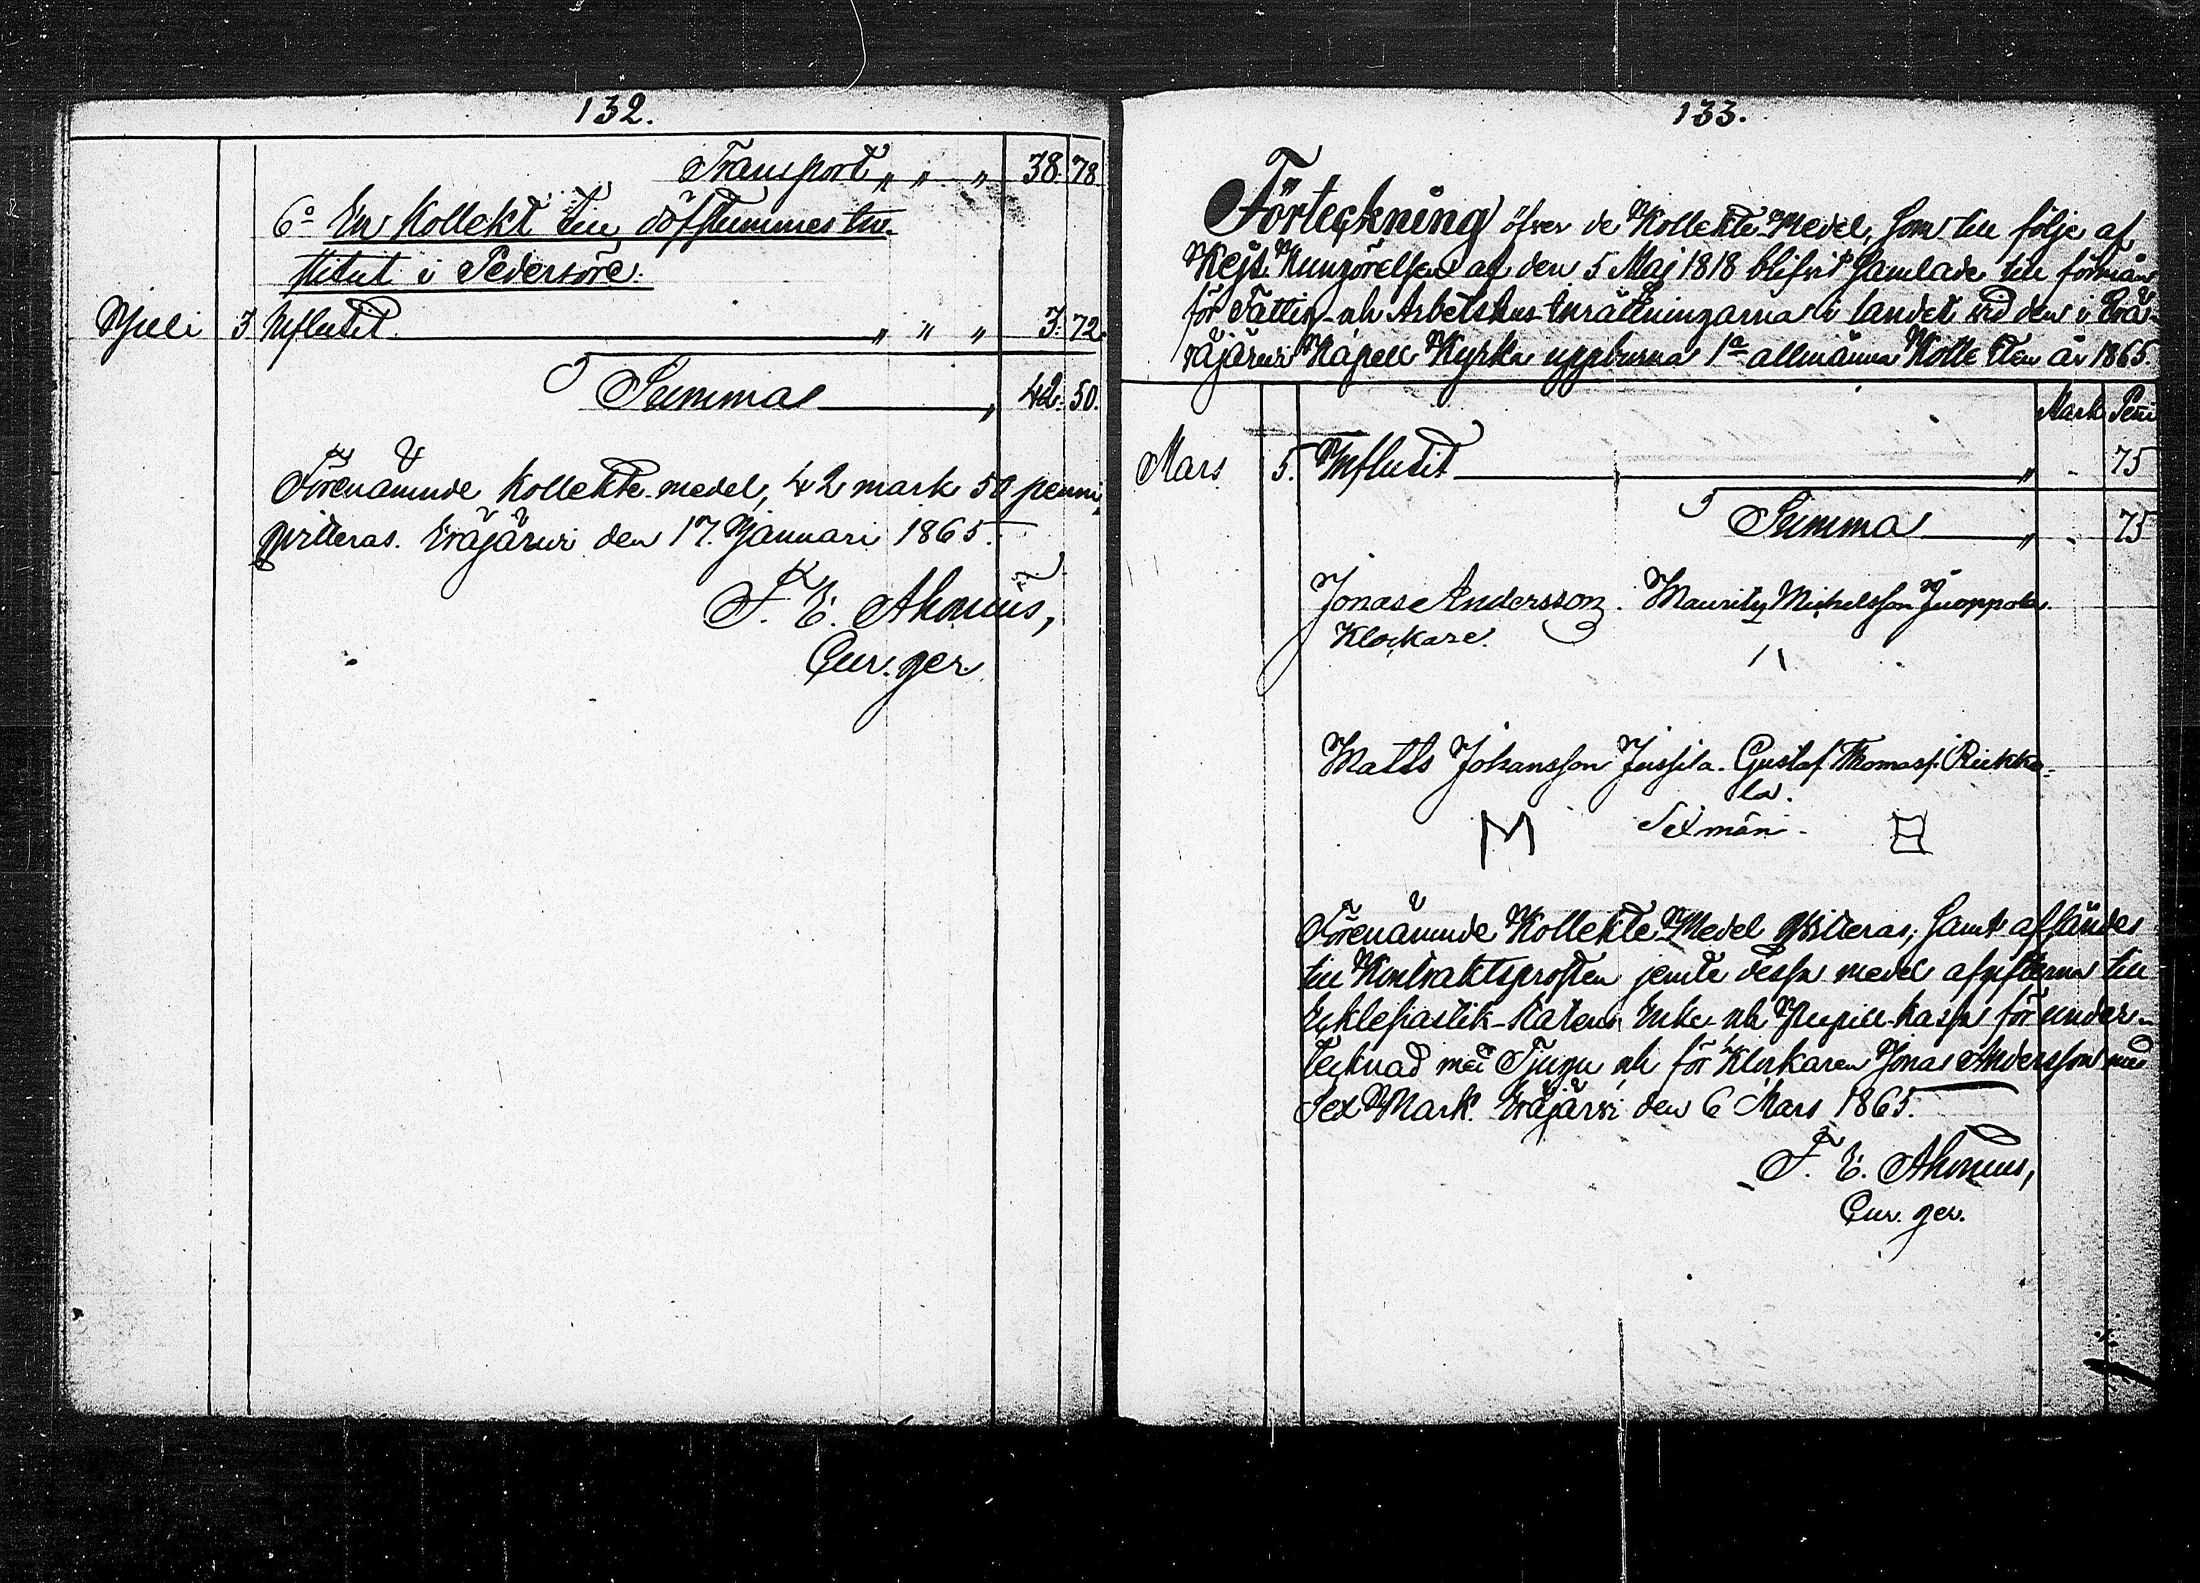 132.
Transport „ „ „ 38. 78.
6º En Kollekt till döfstummes In-
stitut i Pedersöre.
Juli 3 Influtit „ „ „ 3. 72.
Summa „ 42. 50.
Förenämnde Kollekte-medel, 42 mark 50 penni,
qvitteras. Eräjärvi den 17 Januari 1865.
F. E. Ahonius,
Cur. ger.
133.
Förteckning öfver de Kollekte Medel, som till följe af
Kejs. Kungörelsen af den 5 Maj 1818 blifvit samlade till förmån
för Fattig- och Arbetshus Inrättningarna i landet vid den i Erä-
räjärvi Kapell Kyrka uppburna 1a allmänna Kollekten år 1865.
Mark Penni
Mars 5. Influtit „ - 75
Summa „ - 75
Jonas Andersson. Mauritz Michelsson Juoppola.
Klockare.
Matts Johansson Jussila. Gustaf Thomass. Riekko-
la.
M Sexmän.
Förenämnde Kollekte Medel qvitteras, samt afsändes
till Kontraktsprosten jemte dessa medel afgifterna till
Ecklesiastik-Statens Enke- och Pupill-kassa för under-
tecknad med Tjugu och för Klockaren Jonas Andersson med
Sex Mark. Eräjärvi den 6 Mars 1865.
F. E. Ahonius,
Cur. ger.